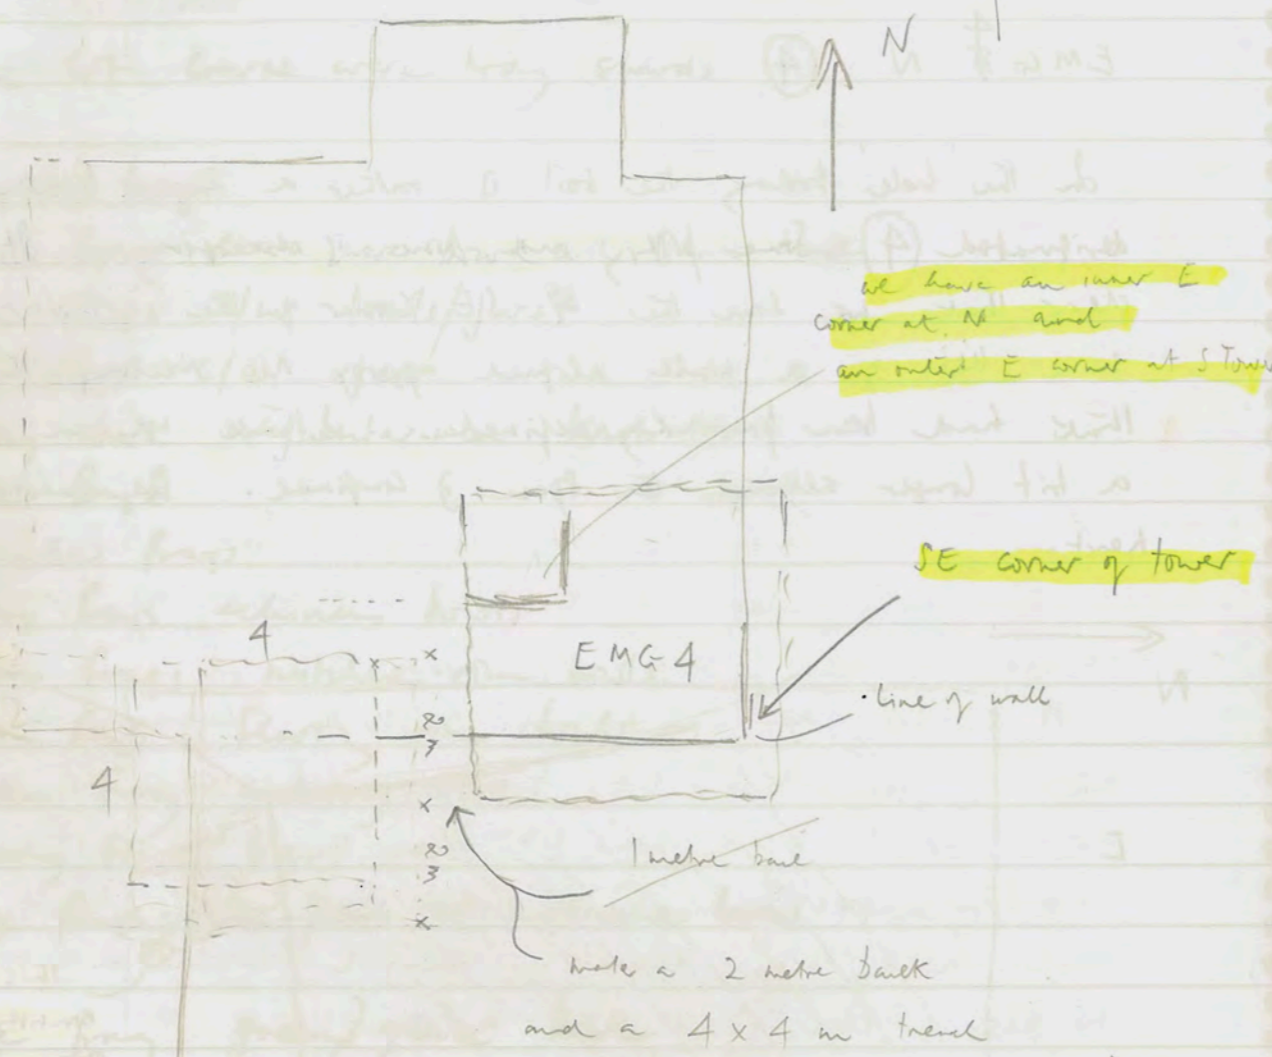 N
we have an inner E
corner at N and
an outer E corner at S Tower
SE corner of tower
EMG 4
4
line of wall
4
1 metre baulk
make a 2 metre baulk
and a 4 x 4 m trench